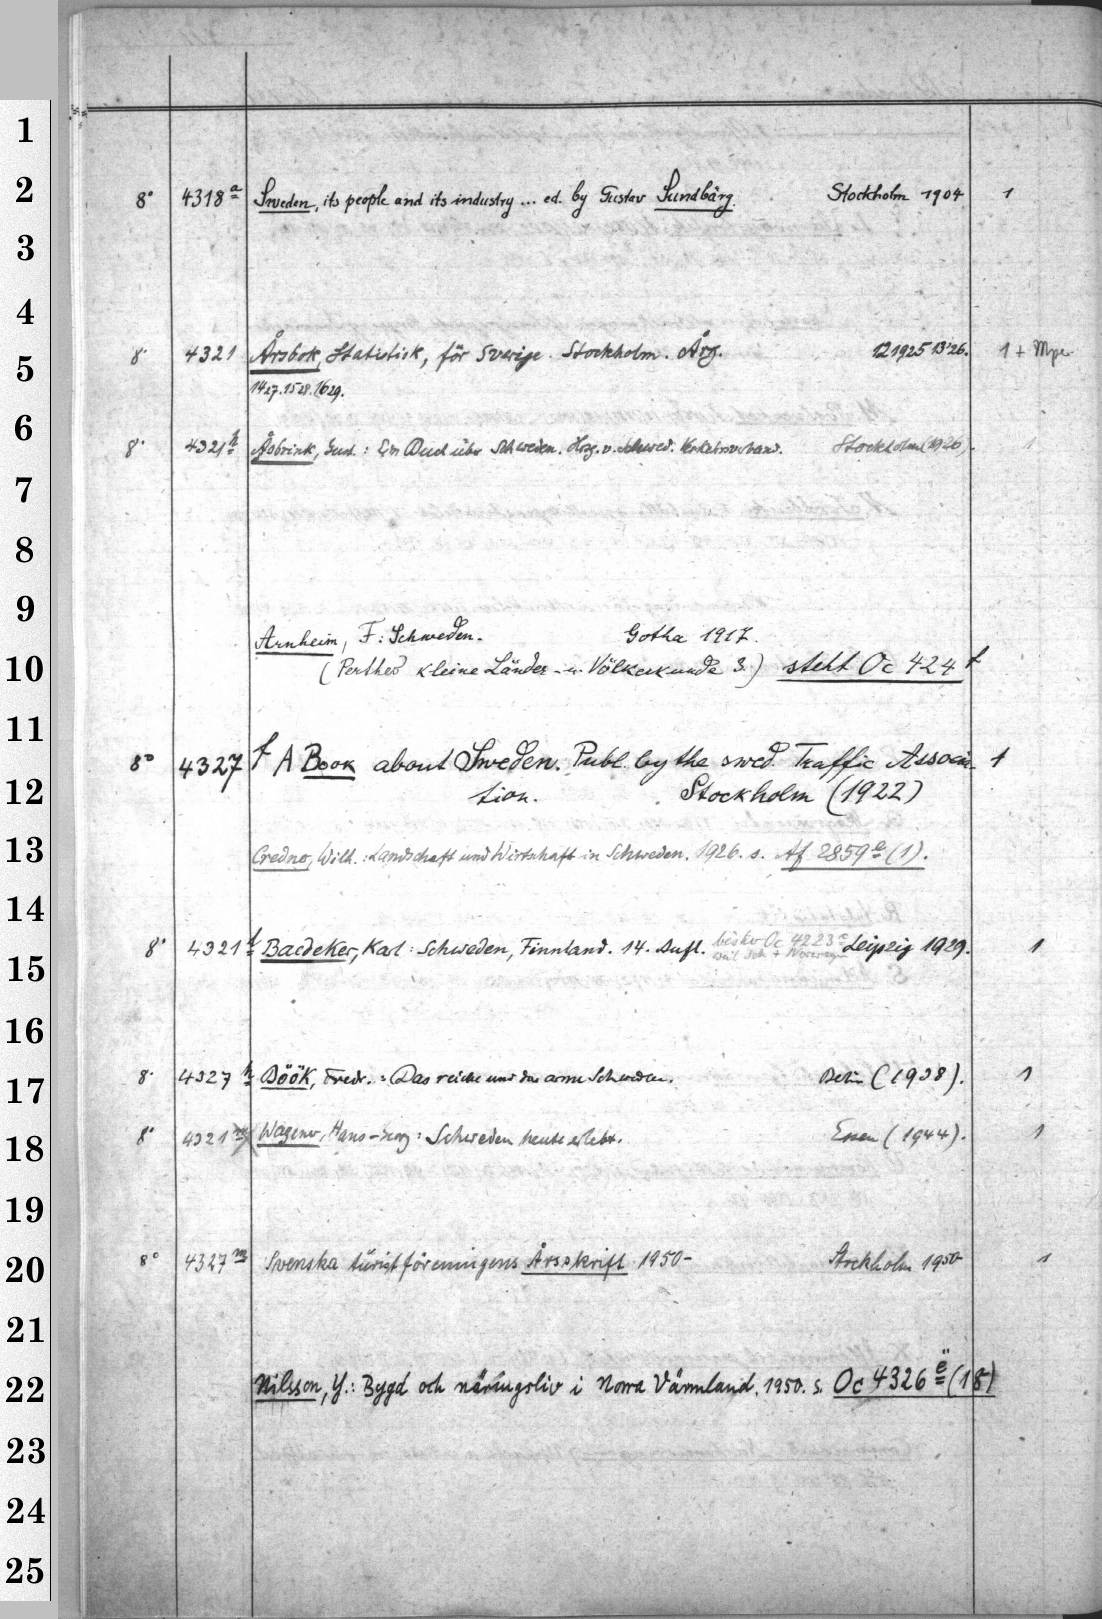 1
2
8° 4318a Sweden, its people and its industry ... ed. by Gustav Sundbärg. Stockholm 1904 1
3
4
5
8° 4321 Årsbok, Statistisk, för Sverige. Stockholm. Årg. 12 1925 13 26. 1 +
14 27. 15 28. 16 29.
6
8° 4321h Åsbrink, Gust.: Ein Buch über Schweden. Hrsg. v. Schwed. Verkehrsverband. Stockholm (1926). 1
7
8
9
Arnheim, F.: Schweden. Gotha 1917.
10
(Perthes kleine Länder- u. Völkerkunde 3.) steht Oc 424 f
11
8° 4327 f A Book about Sweden. Publ. by the swed. Traffic Associa- 1
12
tion. Stockholm (1922)
13
Credner, Wilh.: Landschaft und Wirtschaft in Schweden. 1926. s. Af 2859e (1).
14
8° 4321 Baedeker, Karl: Schweden, Finnland. 14. Aufl. Leipzig 1929. 1
bisher Oc 4223
15
16
17
8° 4327h Böök, Fredr.: Das reiche und das arme Schweden. Berlin (1938). 1
18
8° 4321m Wagner, Hans-Georg: Schweden heute erlebt. Essen (1944). 1
19
20
8° 4327m Svenska turistföreningens Årsskrift 1950- Stockholm 1950- 1
21
22
Nilsson, Y.: Bygd och näringsliv i Norra Värmland. 1950. s. Oc 4326ë (18)
23
24
25